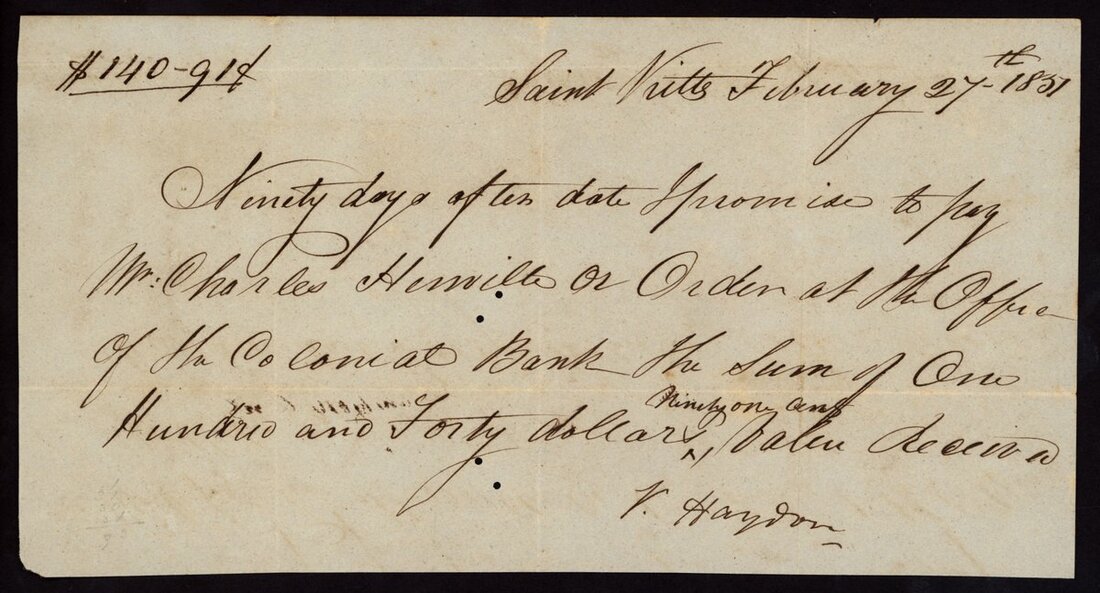 $140-91¢
Saint Kitts February 27th 1851
Ninety days after date I promise to pay
Mr. Charles or Order at the Office
of the Colonial Bank the Sum of One
Ninety one cents
Hundred and Forty dollars, Value Received
V. Haydon